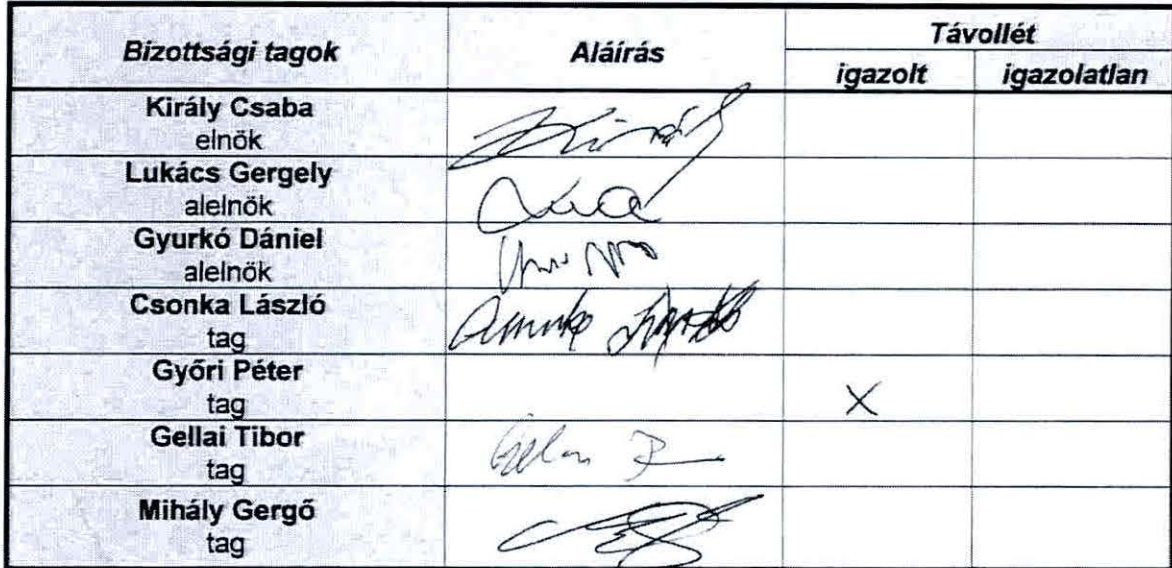 Bizottsági tagok Aláírás Távollét
igazolt igazolatlan
Király Csaba
elnök
Lukács Gergely
alelnök
Gyurkó Dániel
alelnök
Csonka László
tag
Győri Péter
tag X
Gellai Tibor
tag
Mihály Gergő
tag